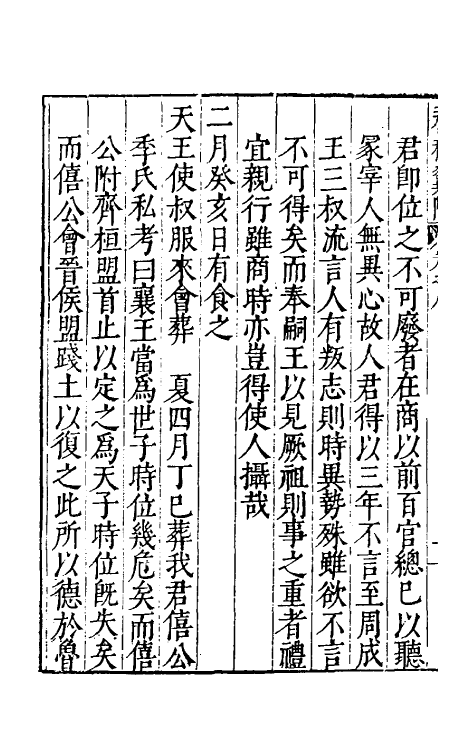 君卽位之不可廢者在商以前百官總已以聽
冢宰人無異心故人君得以三年不言至周成
王三叔流言人有叛志則時異勢殊雖欲不言
不可得矣而奉嗣王以見厥祖則事之重者禮
宜親行雖商時亦豈得使人攝哉
二月癸亥日有食之
天王使叔服來會葬 夏四月丁巳葬我君僖公
季氏私考曰襄王當爲世子時位幾危矣而僖
公附齊桓盟首止以定之爲天子時位旣失矣
而僖公會晉侯盟踐土以復之此所以德於魯